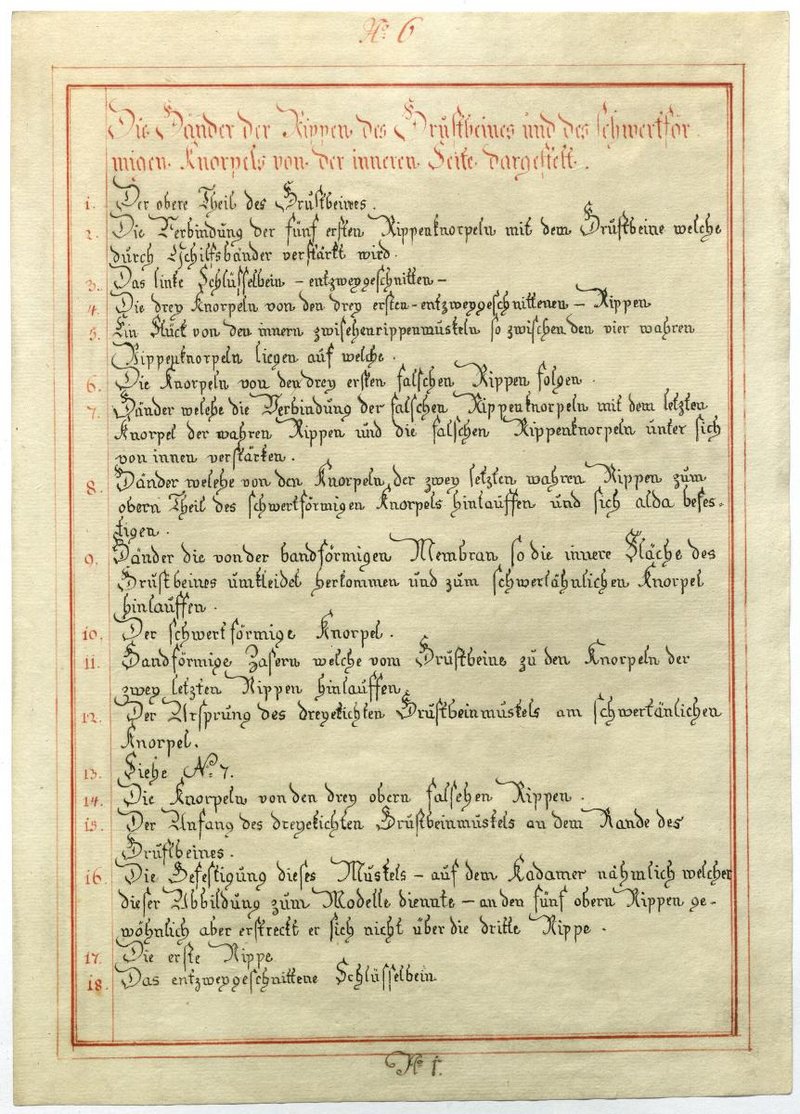 N: 6
Die Bänder der Rippen des Brustbeines und des schwertför
migen Knorpels von der inneren Seite dargestelt.
1. Der obere Theil des Brustbeines.
2. Die Verbindung der fünf ersten Rippenknorpeln mit dem Brustbeine welche
durch Hilfsbänder verstärkt wird.
3. Das linke Schlüsselbein – entzweygeschnitten –
4. Die drey Knorpeln von den drey ersten – entzweygeschnittenen – Rippen
5. Ein Stück von den innern zwischenrippenmuskeln so zwischen den vier wahren
Rippenknorpeln liegen auf welche.
6. Die Knorpeln von den drey ersten falschen Rippen folgen.
7. Bänder welche die Verbindung der falschen Rippenknorpeln mit dem letzten
Knorpel der wahren Rippen und die falschen Rippenknorpeln unter sich
von innen verstärken.
8. Bänder welche von den Knorpeln der zwey letzten wahren Rippen zum
obern Theil des schwertförmigen Knorpels hinlauffen und sich alda befes-
tigen.
9. Bänder die von der bandförmigen Membran so die innere Fläche des
Brustbeines umkleidet herkommen und zum schwertähnlichen Knorpel
hinlauffen.
10. Der schwertförmige Knorpel.
11. Bandförmige Zasern welche vom Brustbeine zu den Knorpeln der
zwey letzten Rippen hinlauffen.
12. Der Ursprung des dreyekichten Brustbeinmuskels am schwertänlichen
Knorpel.
13. Siehe No 7.
14. Die Knorpeln von den drey obern falschen Rippen.
15. Der Anfang des dreyekichten Brustbeinmuskels an dem Rande des
Brustbeines.
16. Die Befestigung dieses Muskels – auf dem Kadawer nähmlich welcher
dieser Abbildung zum Modelle diennte – an den fünf obern Rippen ge-
wöhnlich aber erstreckt er sich nicht über die dritte Rippe.
17. Die erste Rippe
18. Das entzweygeschnittene Schlüsselbein
No 1.